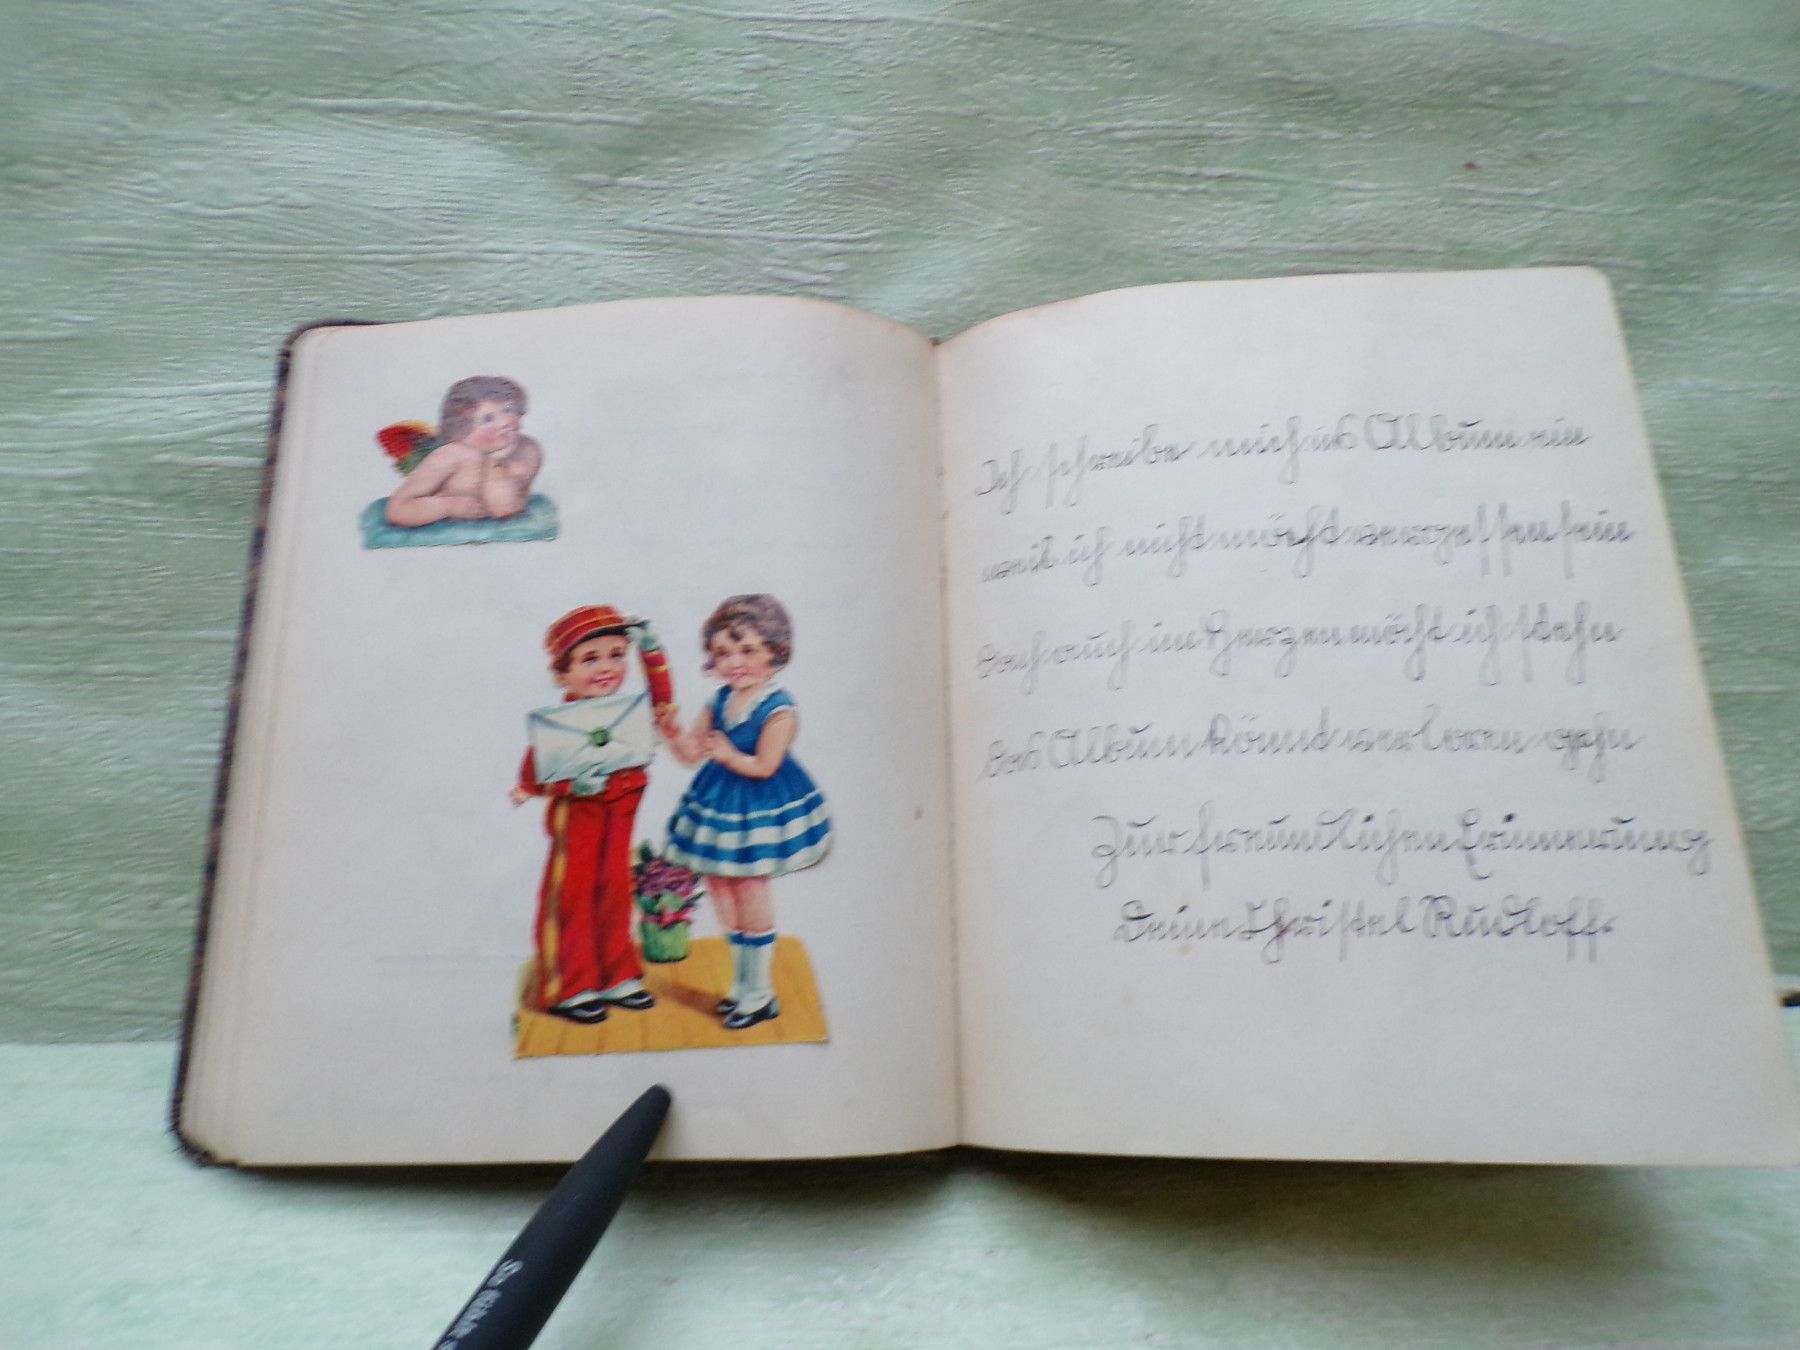 Ich schreibe mich ins Album ein
weil ich nicht möcht vergessen sein
doch auch im Herzen möcht ich stehn
das Album könnt verloren gehn
Zur freundlichen Erinnerung
Deine Christel Rudloff.